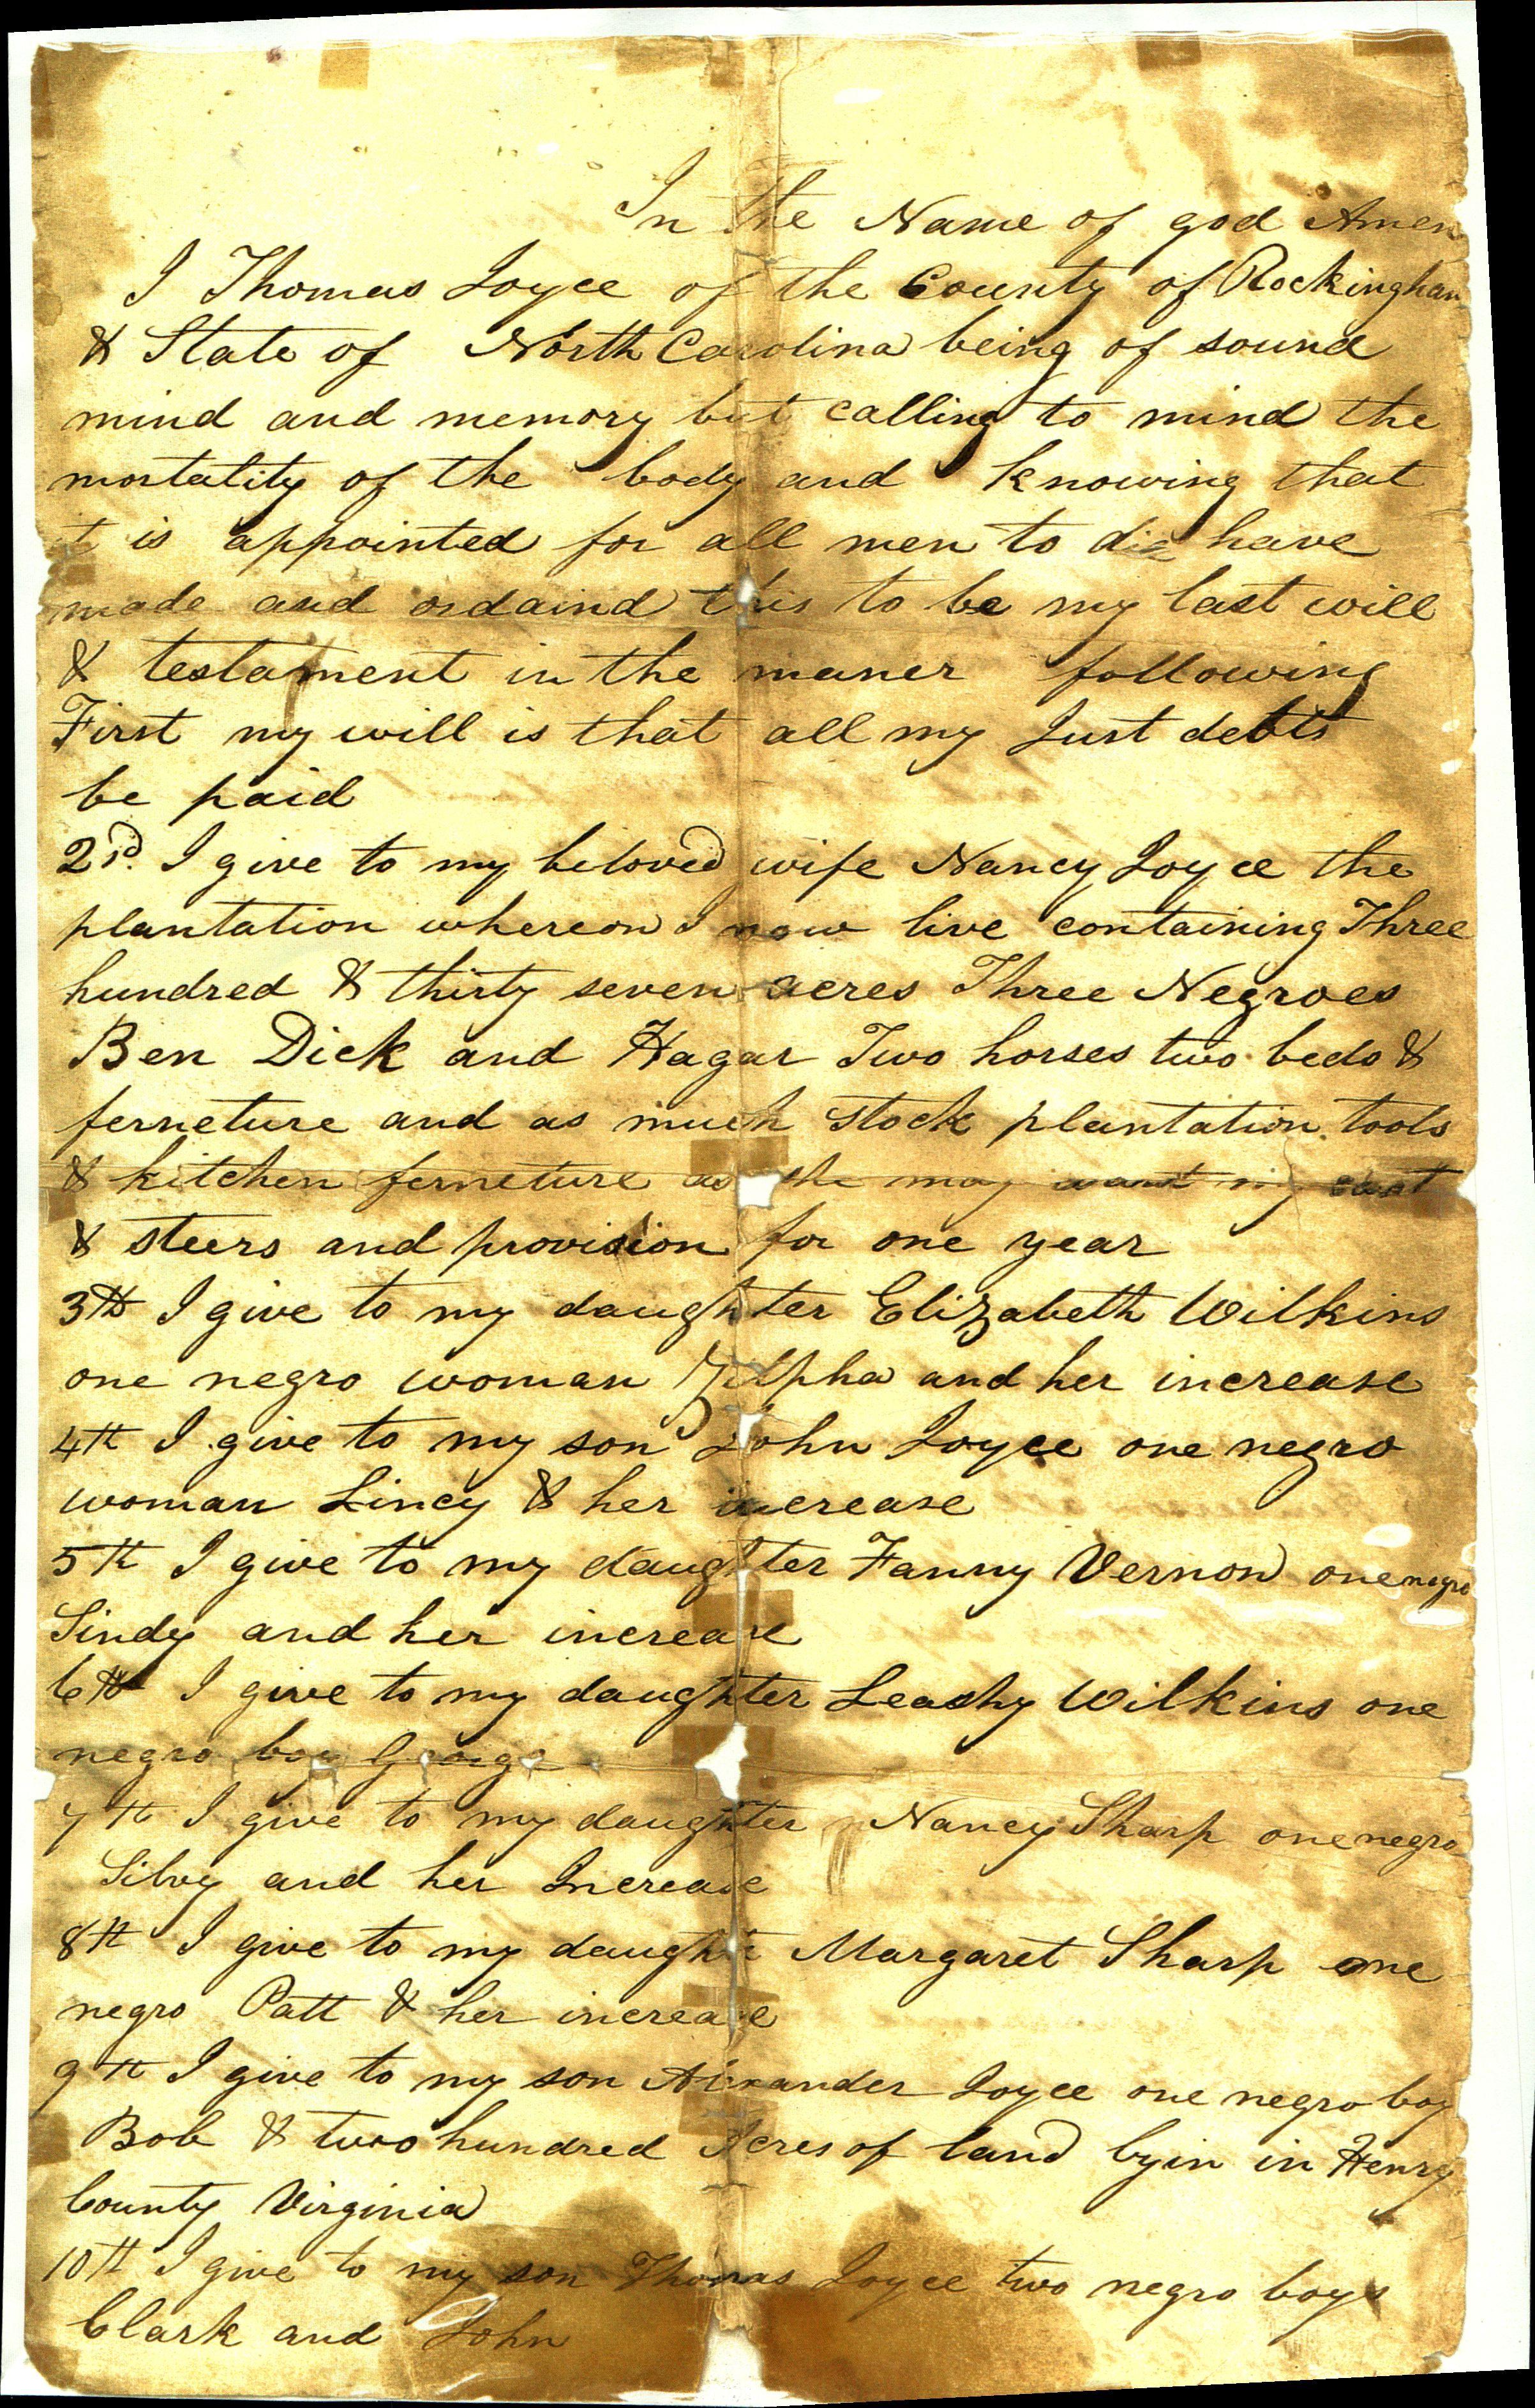 In the Name of god Amen
I Thomas Joyce of the County of Rockingham
& State of North Carolina being of sound
mind and memory but calling to mind the
mortality of the body and knowing that
it is appointed for all men to die have
made and ordaind this to be my last will
& testament in the maner following
First my will is that all my Just debts
be paid
2nd. I give to my beloved wife Nancy Joyce the
plantation whereon I now live containing Three
hundred & thirty seven acres Three Negroes
Ben Dick and Hagar Two horses two beds &
ferneture and as much stock plantation tools
& kitchen ferneture as she may want my cart
& steers and provision for one year
3th I give to my daughter Elizabeth Wilkins
one negro woman Zilpha and her increase
4th I give to my son John Joyce one negro
woman Lincy & her increase
5th I give to my daughter Fanny Vernon one negro
Sindy and her increase
6th I give to my daughter Leashy Wilkins one
negro boy George
7th I give to my daughter Nancy Sharp one negro
Silvy and her Increase
8th I give to my daughter Margaret Sharp one
negro Patt & her increase
9th I give to my son Alexander Joyce one negro boy
Bob & two hundred Acres of land lyin in Henry
County Virginia
10th I give to my son Thomas Joyce two negro boys
Clark and John